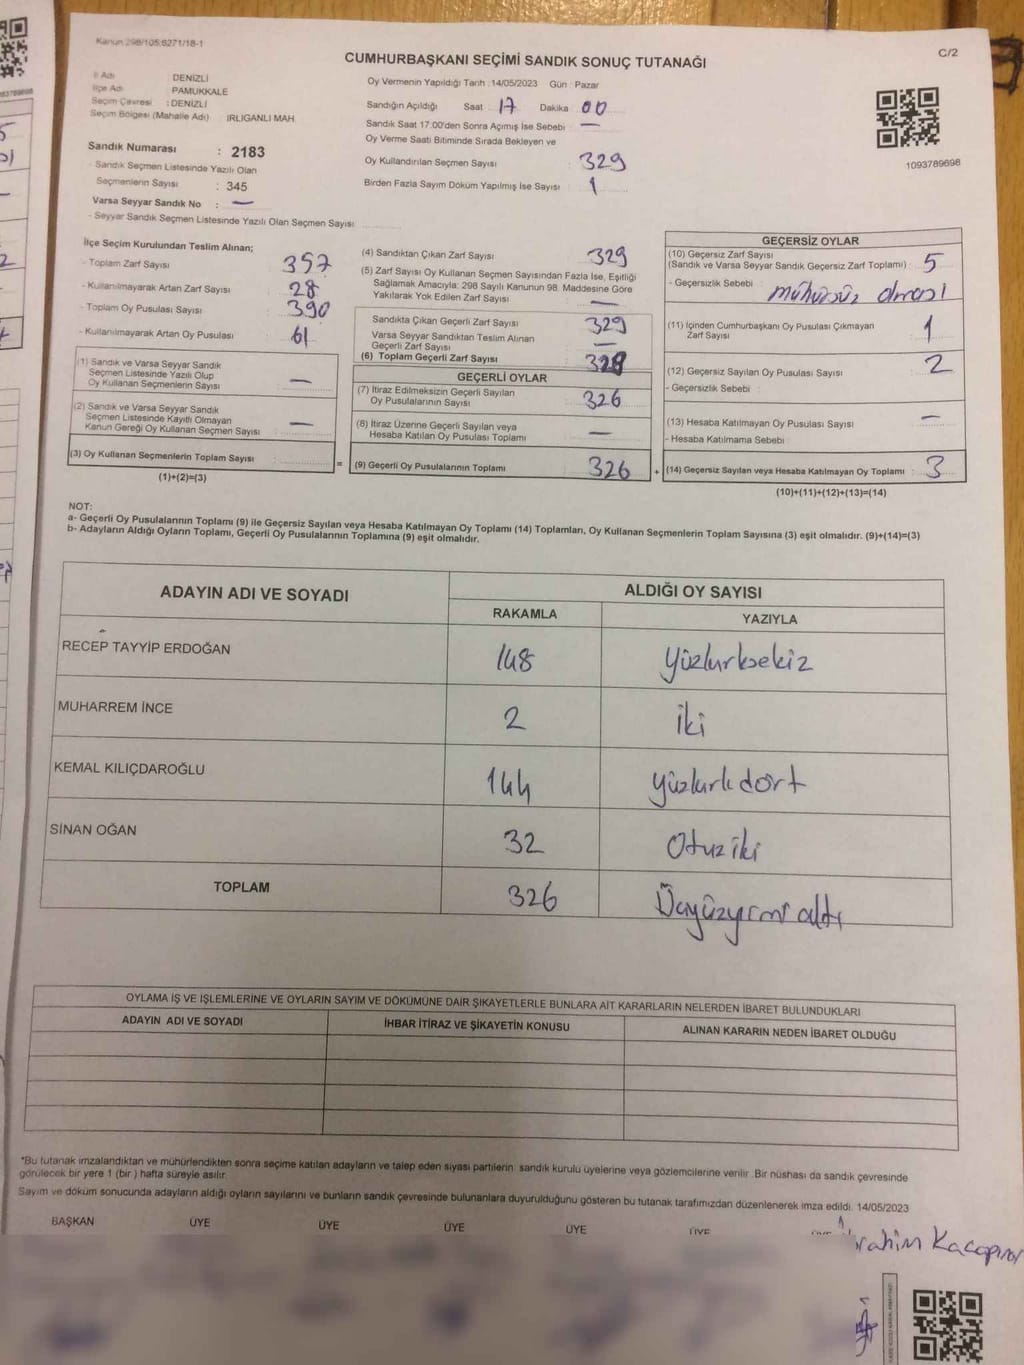 Kanun 298/105,6271/18-1
C/2
CUMHURBAŞKANI SEÇİMİ SANDIK SONUÇ TUTANAĞI
İl Adı : DENİZLİ
İlçe Adı : PAMUKKALE
Seçim Çevresi : DENİZLİ
Seçim Bölgesi (Mahalle Adı) : IRLIGANLI MAH.
Sandık Numarası : 2183
- Sandık Seçmen Listesinde Yazılı Olan
Seçmenlerin Sayısı : 345
Varsa Seyyar Sandık No : —
- Seyyar Sandık Seçmen Listesinde Yazılı Olan Seçmen Sayısı
Oy Vermenin Yapıldığı Tarih :14/05/2023 Gün : Pazar
Sandığın Açıldığı Saat 17 Dakika 00
Sandık Saat 17:00'den Sonra Açımış İse Sebebi : —
Oy Verme Saati Bitiminde Sırada Bekleyen ve
Oy Kullandırılan Seçmen Sayısı : 329
Birden Fazla Sayım Döküm Yapılmış İse Sayısı : 1
1093789698
İlçe Seçim Kurulundan Teslim Alınan;
- Toplam Zarf Sayısı : 357
- Kullanılmayarak Artan Zarf Sayısı : 28
- Toplam Oy Pusulası Sayısı : 390
- Kullanılmayarak Artan Oy Pusulası : 61
(1) Sandık ve Varsa Seyyar Sandık
Seçmen Listesinde Yazılı Olup
Oy Kullanan Seçmenlerin Sayısı : —
(2) Sandık ve Varsa Seyyar Sandık
Seçmen Listesinde Kayıtlı Olmayan
Kanun Gereği Oy Kullanan Seçmen Sayısı : —
(3) Oy Kullanan Seçmenlerin Toplam Sayısı :
(1)+(2)=(3)
=
(4) Sandıktan Çıkan Zarf Sayısı : 329
(5) Zarf Sayısı Oy Kullanan Seçmen Sayısından Fazla İse, Eşitliği
Sağlamak Amacıyla: 298 Sayılı Kanunun 98. Maddesine Göre
Yakılarak Yok Edilen Zarf Sayısı : —
Sandıkta Çıkan Geçerli Zarf Sayısı : 329
Varsa Seyyar Sandıktan Teslim Alınan
Geçerli Zarf Sayısı : —
(6) Toplam Geçerli Zarf Sayısı : 329
GEÇERLİ OYLAR
(7) İtiraz Edilmeksizin Geçerli Sayılan
Oy Pusulalarının Sayısı : 326
(8) İtiraz Üzerine Geçerli Sayılan veya
Hesaba Katılan Oy Pusulası Toplamı : —
(9) Geçerli Oy Pusulalarının Toplamı : 326
+
GEÇERSİZ OYLAR
(10) Geçersiz Zarf Sayısı
(Sandık ve Varsa Seyyar Sandık Geçersiz Zarf Toplamı) : 5
- Geçersizlik Sebebi : mühürsüz olması
(11) İçinden Cumhurbaşkanı Oy Pusulası Çıkmayan
Zarf Sayısı : 1
(12) Geçersiz Sayılan Oy Pusulası Sayısı : 2
- Geçersizlik Sebebi :
(13) Hesaba Katılmayan Oy Pusulası Sayısı : —
- Hesaba Katılmama Sebebi :
(14) Geçersiz Sayılan veya Hesaba Katılmayan Oy Toplamı : 3
(10)+(11)+(12)+(13)=(14)
NOT:
a- Geçerli Oy Pusulalarının Toplamı (9) ile Geçersiz Sayılan veya Hesaba Katılmayan Oy Toplamı (14) Toplamları, Oy Kullanan Seçmenlerin Toplam Sayısına (3) eşit olmalıdır. (9)+(14)=(3)
b- Adayların Aldığı Oyların Toplamı, Geçerli Oy Pusulalarının Toplamına (9) eşit olmalıdır.
ADAYIN ADI VE SOYADI
ALDIĞI OY SAYISI
RAKAMLA YAZIYLA
RECEP TAYYİP ERDOĞAN 148 Yüzkırksekiz
MUHARREM İNCE 2 iki
KEMAL KILIÇDAROĞLU 144 yüzkırkdört
SİNAN OĞAN 32 Otuziki
TOPLAM 326 Üçyüzyirmi altı
OYLAMA İŞ VE İŞLEMLERİNE VE OYLARIN SAYIM VE DÖKÜMÜNE DAİR ŞİKAYETLERLE BUNLARA AİT KARARLARIN NELERDEN İBARET BULUNDUKLARI
ADAYIN ADI VE SOYADI İHBAR İTİRAZ VE ŞİKAYETİN KONUSU ALINAN KARARIN NEDEN İBARET OLDUĞU
*Bu tutanak imzalandıktan ve mühürlendikten sonra seçime katılan adayların ve talep eden siyasi partilerin sandık kurulu üyelerine veya gözlemcilerine verilir. Bir nüshası da sandık çevresinde
görülecek bir yere 1 (bir ) hafta süreyle asılır.
Sayım ve döküm sonucunda adayların aldığı oyların sayılarını ve bunların sandık çevresinde bulunanlara duyurulduğunu gösteren bu tutanak tarafımızdan düzenlenerek imza edildi. 14/05/2023
BAŞKAN ÜYE ÜYE ÜYE ÜYE ÜYE ÜYE